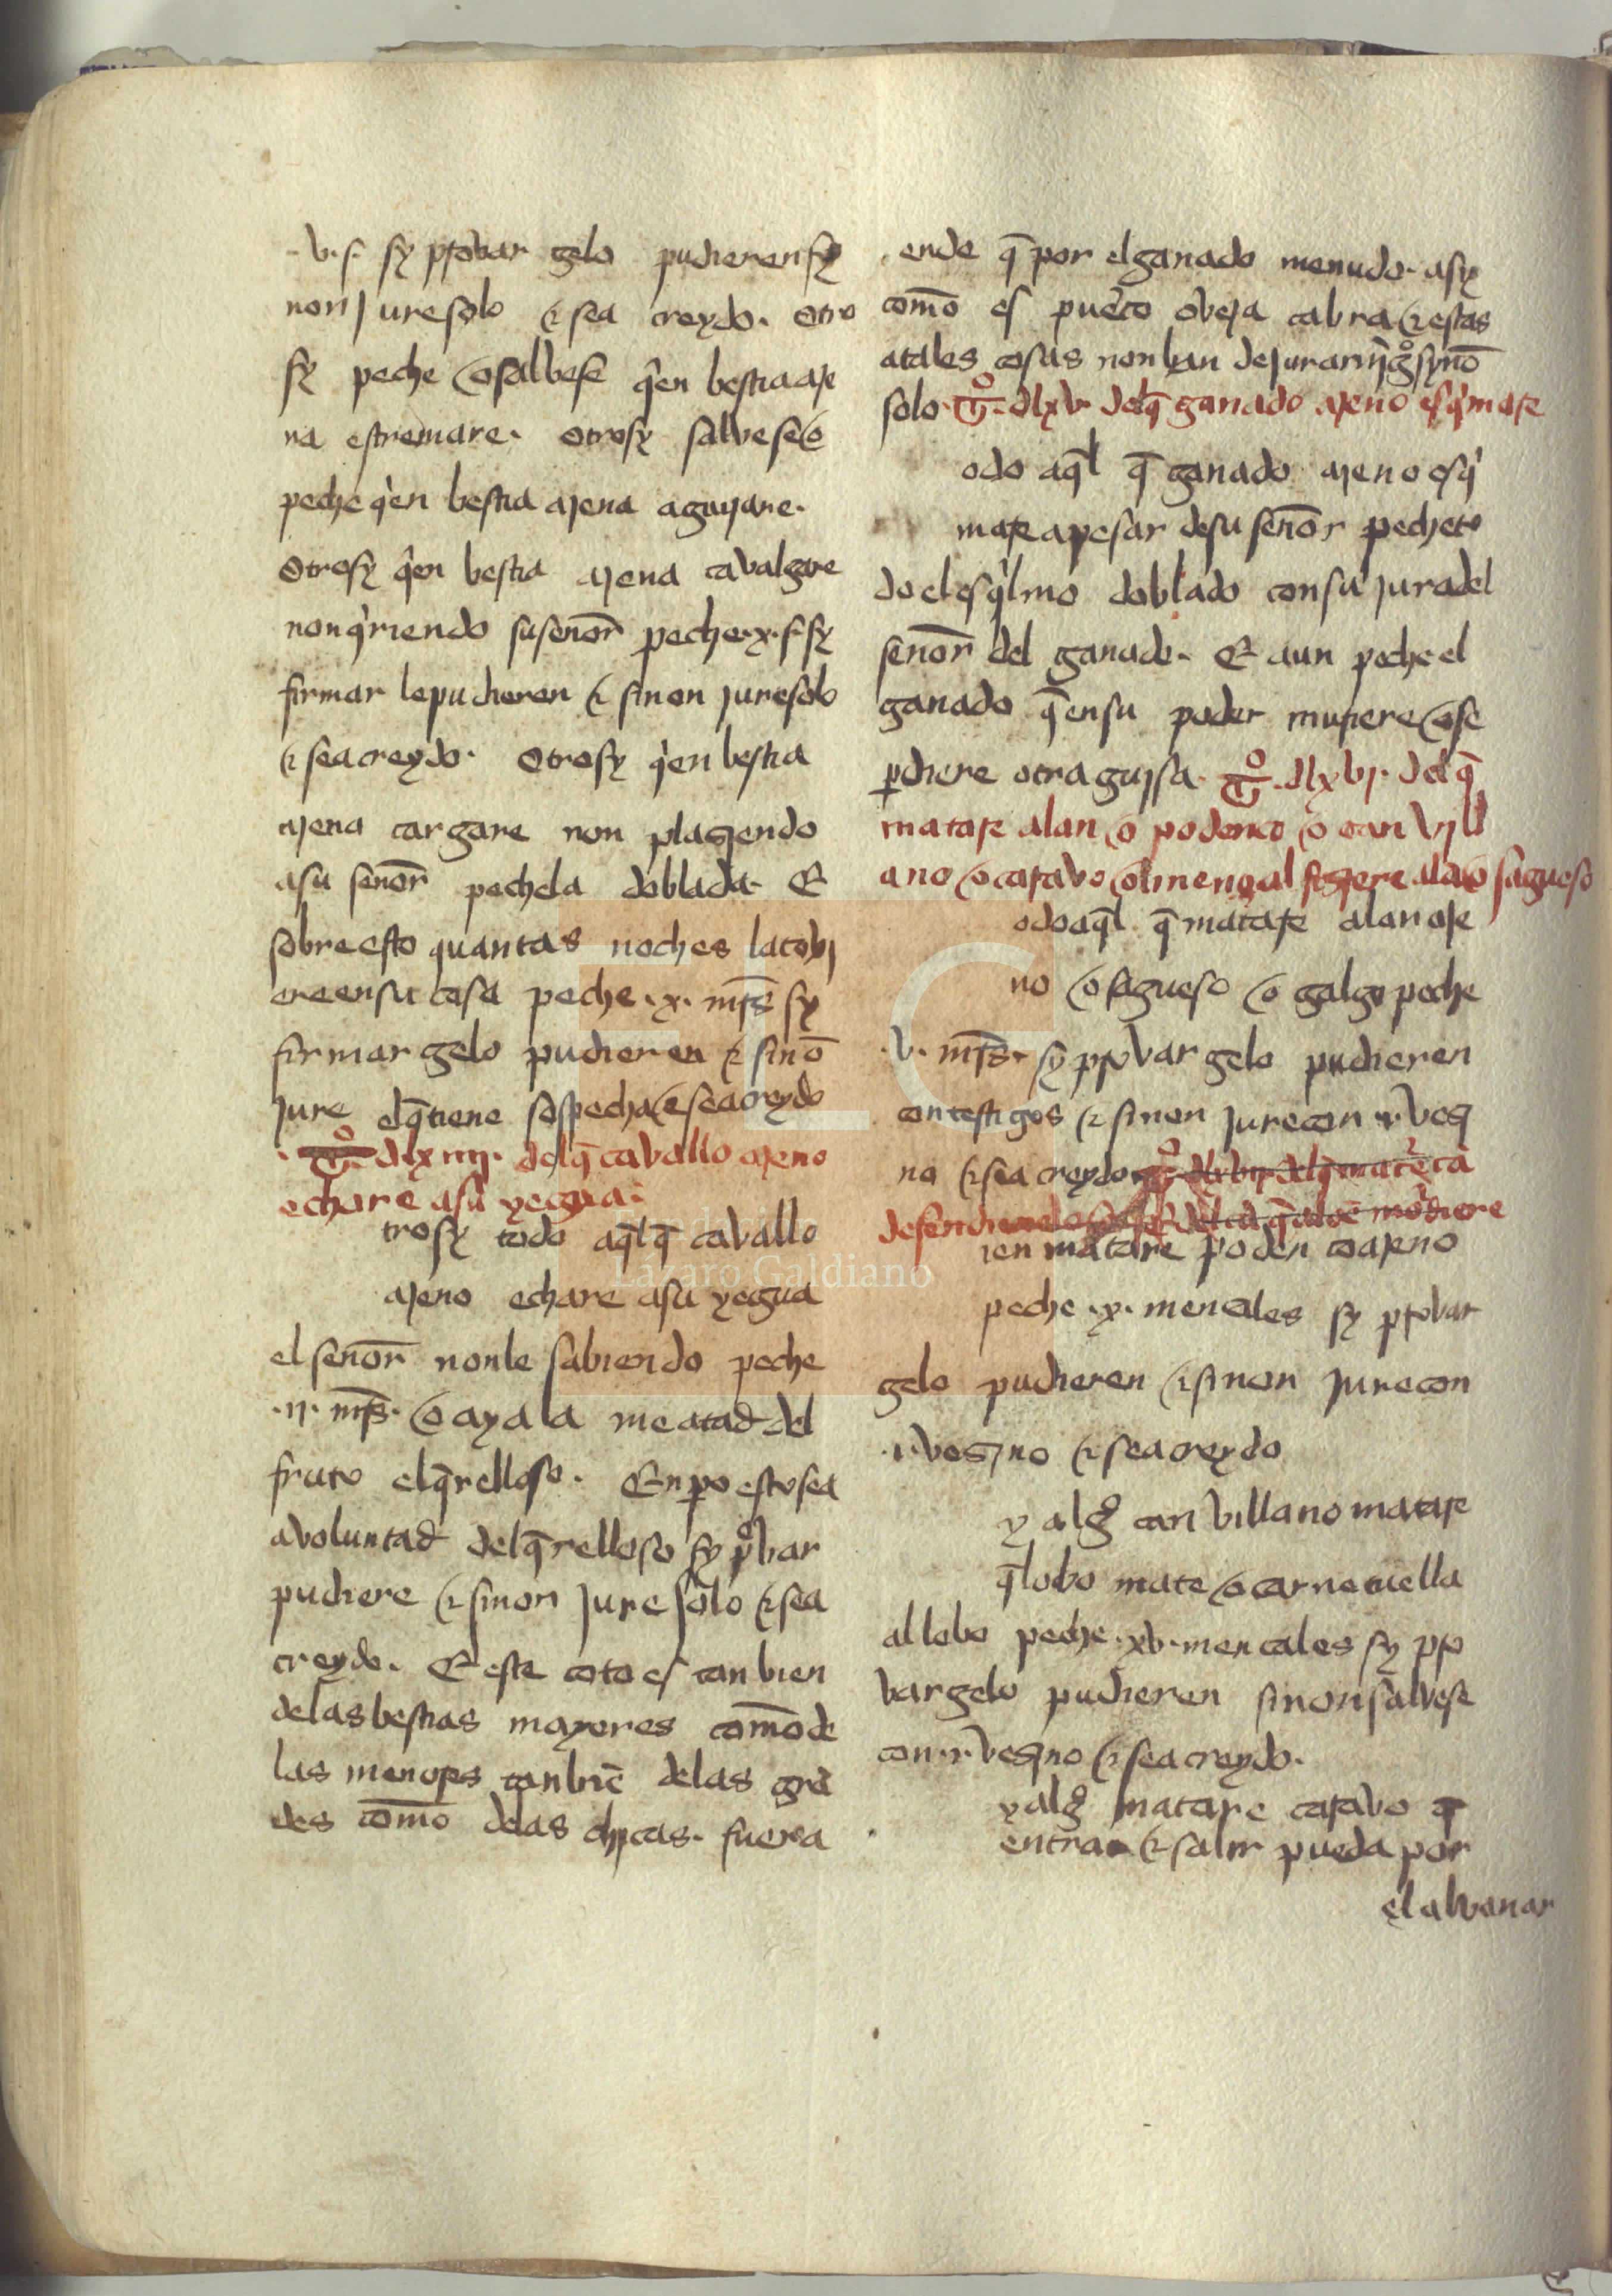 .v. s. sy prouar gelo pudieren sy
non jure solo & sea creydo. Otro
sy peche o saluese qien bestia aje
na estremare. Otrosy saluese o
peche qien bestia ajena aguijare.
Otrosy qien bestia ajena caualgare
non qriendo su señor peche .x. s. sy
firmar le pudieren & sinon jure solo
& sea creydo. Otrosy qien bestia
ajena cargare non plasiendo
a su señor pechela doblada. E
sobre esto quantas noches la tovi
ere en su casa peche .x. mrs sy
firmar gelo pudieren & sinō
jure el q̄ tiene sospecha & sea creydo
. tº. dlxiiij. del q̄ cauallo ajeno
echare a su yegua.
trosy todo aql q̄ cauallo
ajeno echare a su yegua
el señor nonle sabiendo peche
.ij. mrs. o aya la meatad del
fruto el q̄relloso. Enpo esto sea
a voluntad del q̄relloso sy pºbar
pudiere & sinon jure solo & sea
creydo. E este coto es tan bien
delas bestias mayores como de
las menores tan biē delas grā
des como delas chicas. fuera
ende q̄ por el ganado menudo. asy
como es puerco oveja cabra & estas
atales cosas non han de jurar synō
solo. tº. dlxv. del q̄ ganado ajeno esqimare
odo aql q̄ ganado ajeno esqi
mare a pesar de su señor peche to
do el esqilmo doblado con su jura del
señor del ganado. E aun peche el
ganado q̄ en su poder muriere o se
pdiere otra guisa. tº. dlxvj. del q̄
matare alan o podenco o can vill
ano o carauo
odo aql q̄ matare alan aje
no o sagueso o galgo peche
.v. mrs. sy prouar gelo pudieren
con testigos & sinon jure con .i. vesi
no & sea creydo
ien matare podenco ajeno
peche .x. mencales sy prouar
gelo pudieren & sinon jure con
.i. vesino & sea creydo
y algº can villano matare
q̄ lobo mate o carne tuella
al lobo peche .xv. mencales sy pro
uar gelo pudieren sinon saluese
con .i. vesino & sea creydo.
y algº matare carauo q̄
entrar & salir pueda por
el aluanar
Lázaro Galdiano